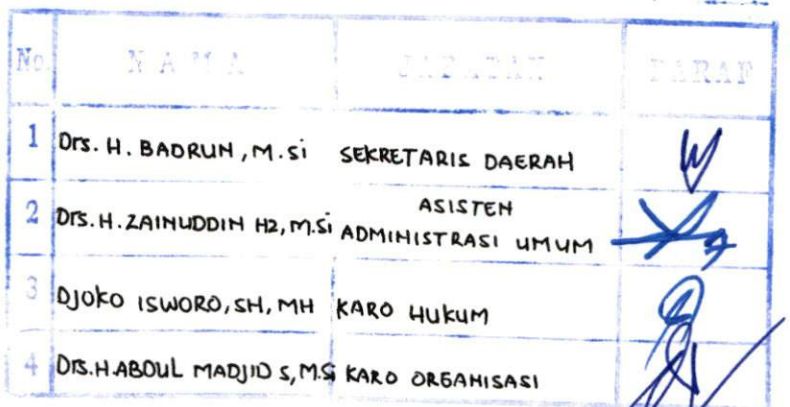 No N A M A JABATAN PARAF
1 Drs. H. BADRUN, M.Si SEKRETARIS DAERAH
2 Drs. H. ZAINUDDIN HZ, M.Si ASISTEN
ADMINISTRASI UMUM
3 DJOKO ISWORO, SH, MH KARO HUKUM
4 Drs. H. ABDUL MADJID S, M.Si KARO ORGANISASI